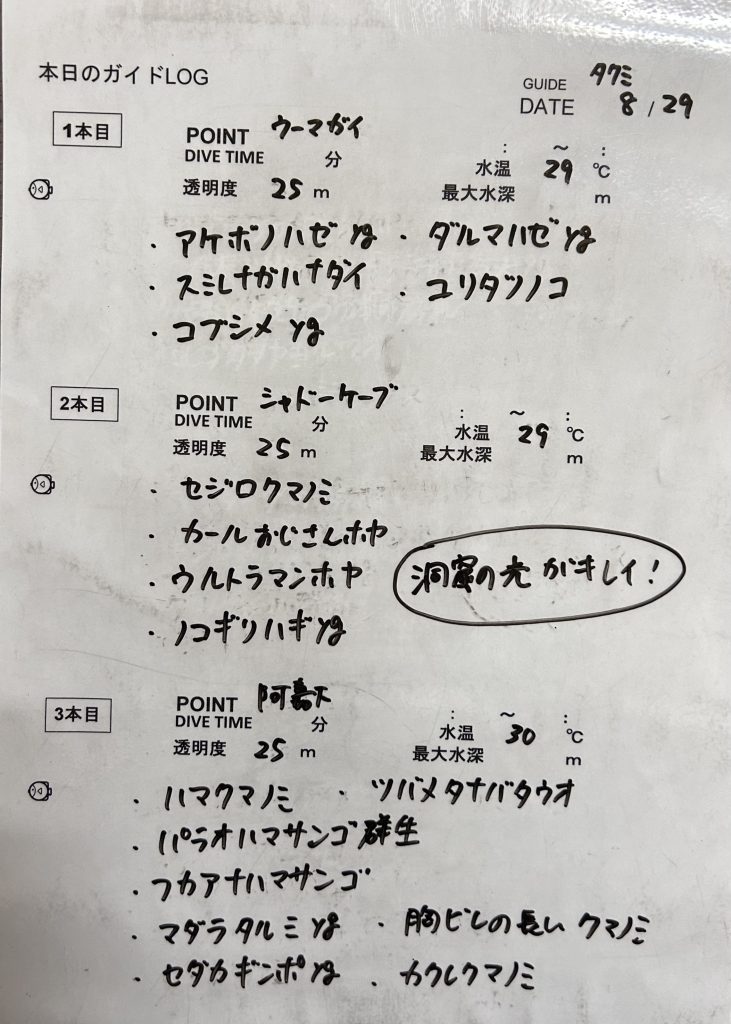 本日のガイドLOG
GUIDE タクミ
DATE 8/29
1本目
POINT ウーマガイ
DIVE TIME 分 : ~ :
水温 29 ℃
透明度 25 m
最大水深 m
・アケボノハゼ yg ・ダルマハゼ yg
・スミレナガハナダイ ・ユリタツノコ
・コブシメ yg
2本目
POINT シャドーケーブ
DIVE TIME 分 : ~ :
水温 29 ℃
透明度 25 m
最大水深 m
・セジロクマノミ
・カールおじさんホヤ
・ウルトラマンホヤ
洞窟の光がキレイ!
・ノコギリハギ yg
3本目
POINT 阿嘉大
DIVE TIME 分 : ~ :
水温 30 ℃
透明度 25 m
最大水深 m
・ハマクマノミ ・ツバメタナバタウオ
・パラオハマサンゴ群生
・フカアナハマサンゴ
・マダラタルミ yg ・胸ビレの長いクマノミ
・セダカギンポ yg ・カクレクマノミ